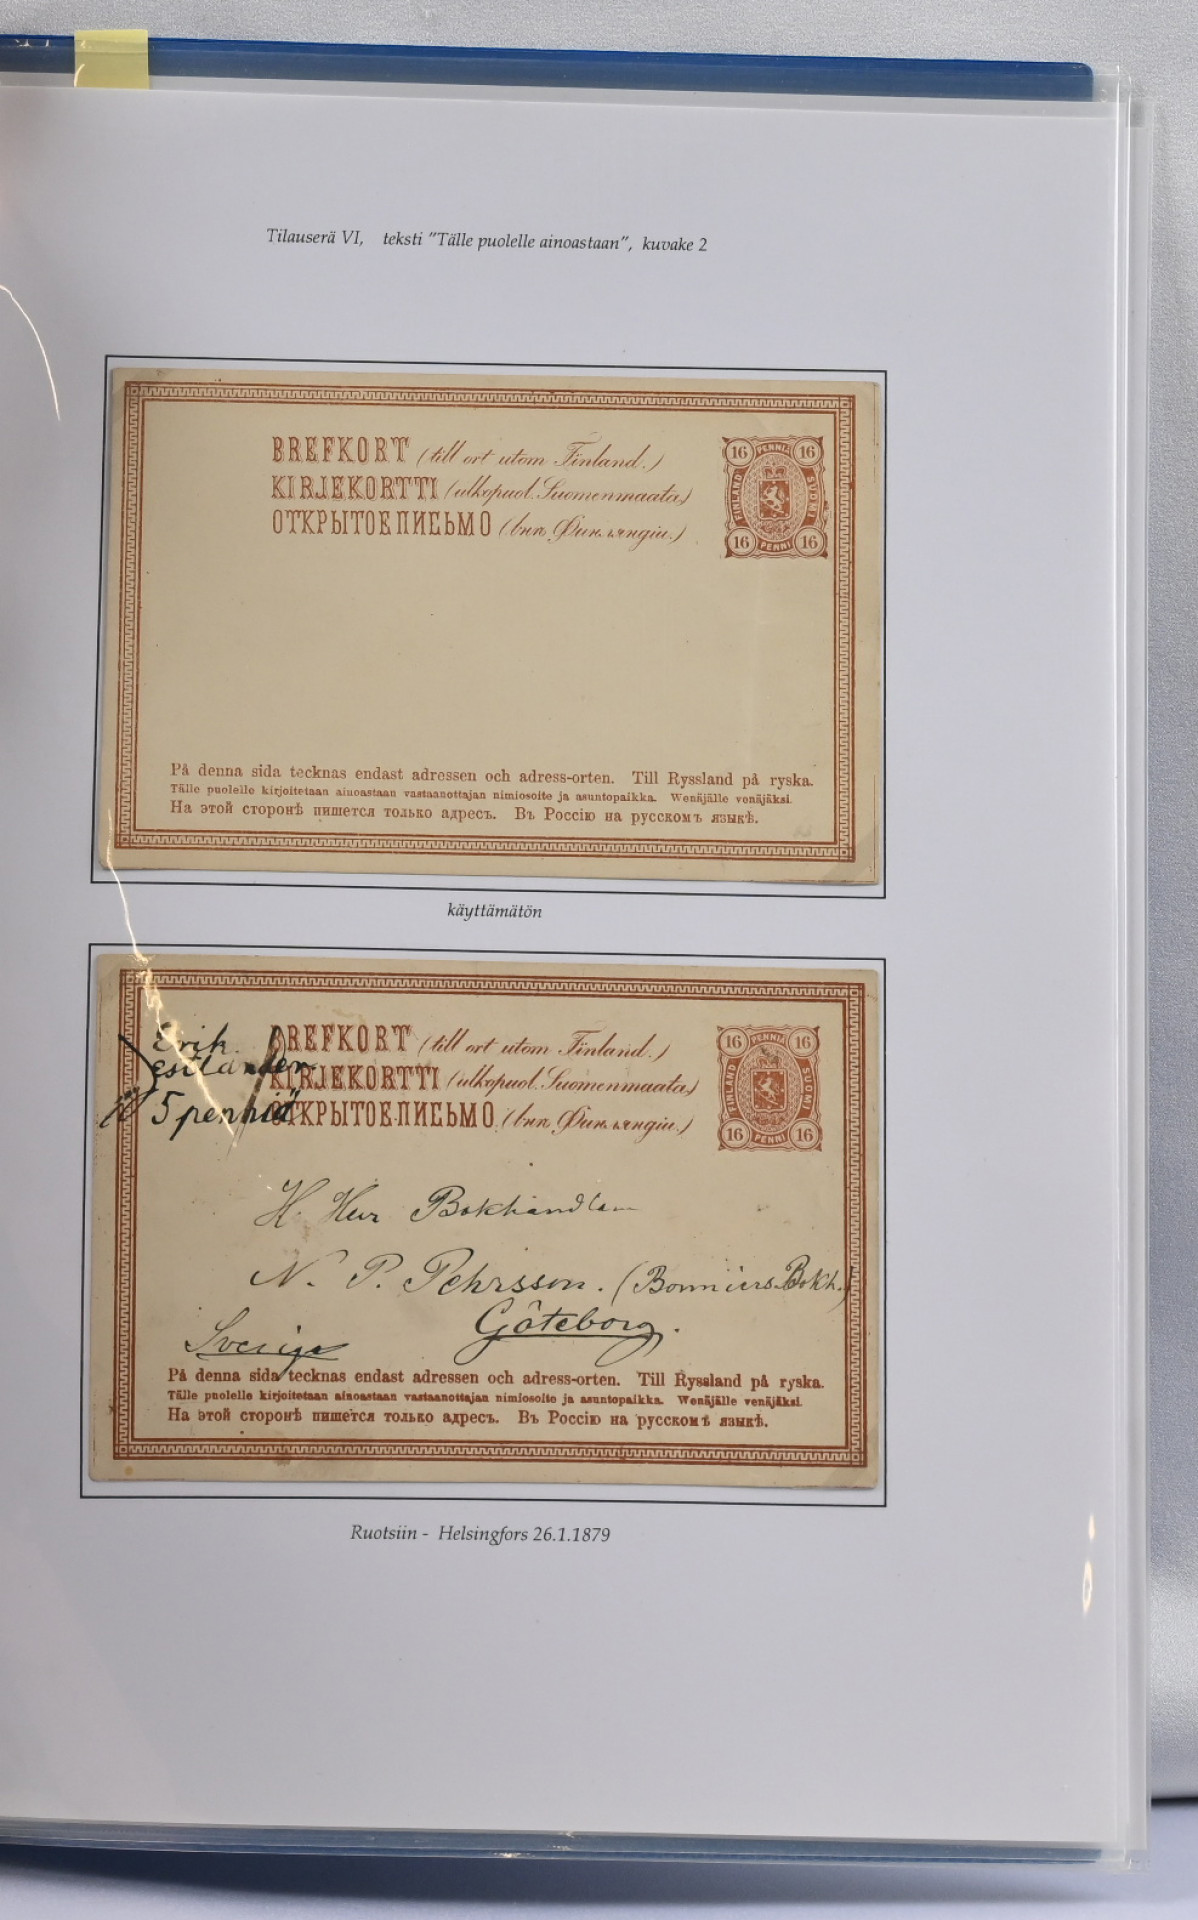 Tilauserä VI, teksti "Tälle puolelle ainoastaan", kuvake 2
BREFKORT (till ort utom Finland.)
KIRJEKORTTI (ulkopuol. Suomenmaata)
ОТКРЫТОЕ ПИСЬМО (внѣ Финляндіи.)
16 PENNIÄ 16
FINLAND SUOMI
16 PENNI 16
På denna sida tecknas endast adressen och adress-orten. Till Ryssland på ryska.
Tälle puolelle kirjoitetaan ainoastaan vastaanottajan nimiosoite ja asuntopaikka. Wenäjälle venäjäksi.
На этой сторонѣ пишется только адресъ. Въ Россію на русскомъ языкѣ.
käyttämätön
Erik
5 penniä
BREFKORT (till ort utom Finland.)
KIRJEKORTTI (ulkopuol. Suomenmaata)
ОТКРЫТОЕ ПИСЬМО (внѣ Финляндіи.)
16 PENNIÄ 16
FINLAND SUOMI
16 PENNI 16
H. Herr
N. P. Pehrsson. (Bonniers Bokh.)
Göteborg.
Sverige
På denna sida tecknas endast adressen och adress-orten. Till Ryssland på ryska.
Tälle puolelle kirjoitetaan ainoastaan vastaanottajan nimiosoite ja asuntopaikka. Wenäjälle venäjäksi.
На этой сторонѣ пишется только адресъ. Въ Россію на русскомъ языкѣ.
Ruotsiin - Helsingfors 26.1.1879